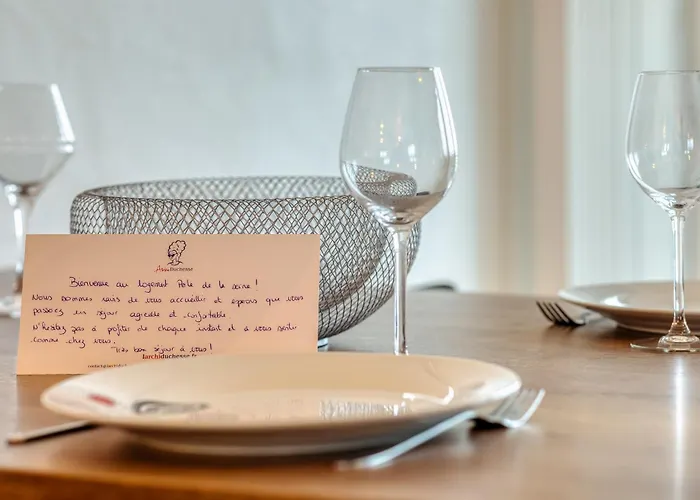 ArchiDuchesse
Bienvenue au logement Pole de la soine !
Nous sommes ravis de vous accueillir et espérons que vous
passerez un séjour agréable et confortable.
N'hésitez pas à profiter de chaque instant et à vous sentir
comme chez vous.
Très bon séjour à vous !
larchiduchesse.fr